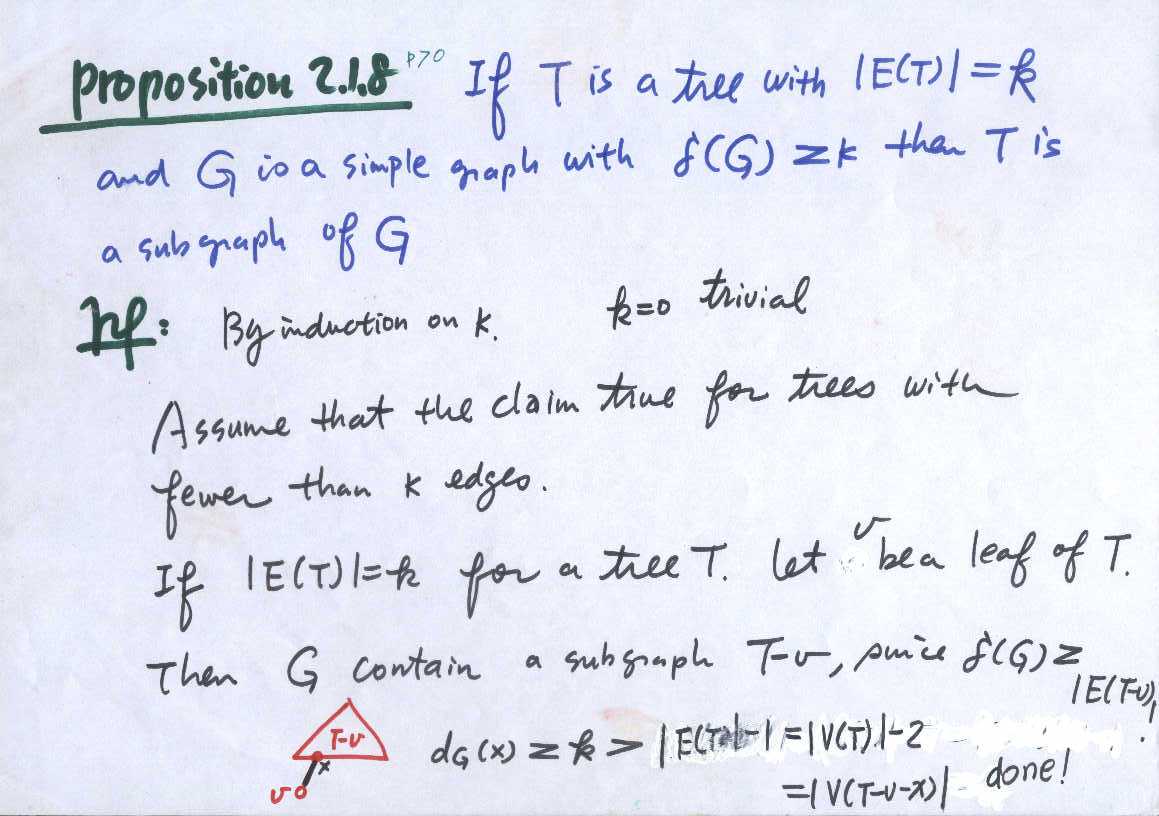 Proposition 2.1.8 p70 If T is a tree with |E(T)| = k
and G is a simple graph with δ(G) ≥ k then T is
a subgraph of G
pf: By induction on k. k=0 trivial
Assume that the claim true for trees with
fewer than k edges.
If |E(T)|=k for a tree T. Let v be a leaf of T.
Then G contain a subgraph T-v, since δ(G) ≥
|E(T-v)|.
T-v
x
v
dG(x) ≥ k > |E(T)|-1 = |V(T)|-2
=|V(T-v-x)| done!